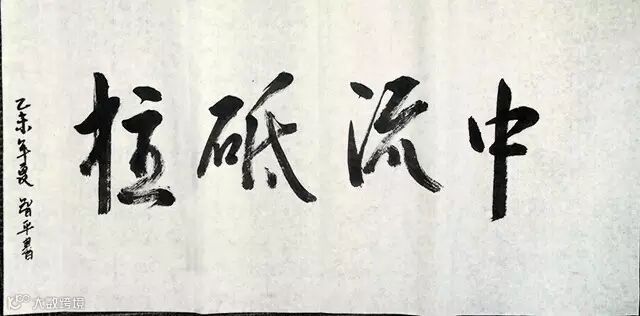 中流砥柱
乙未年夏 智平書
大数跨境